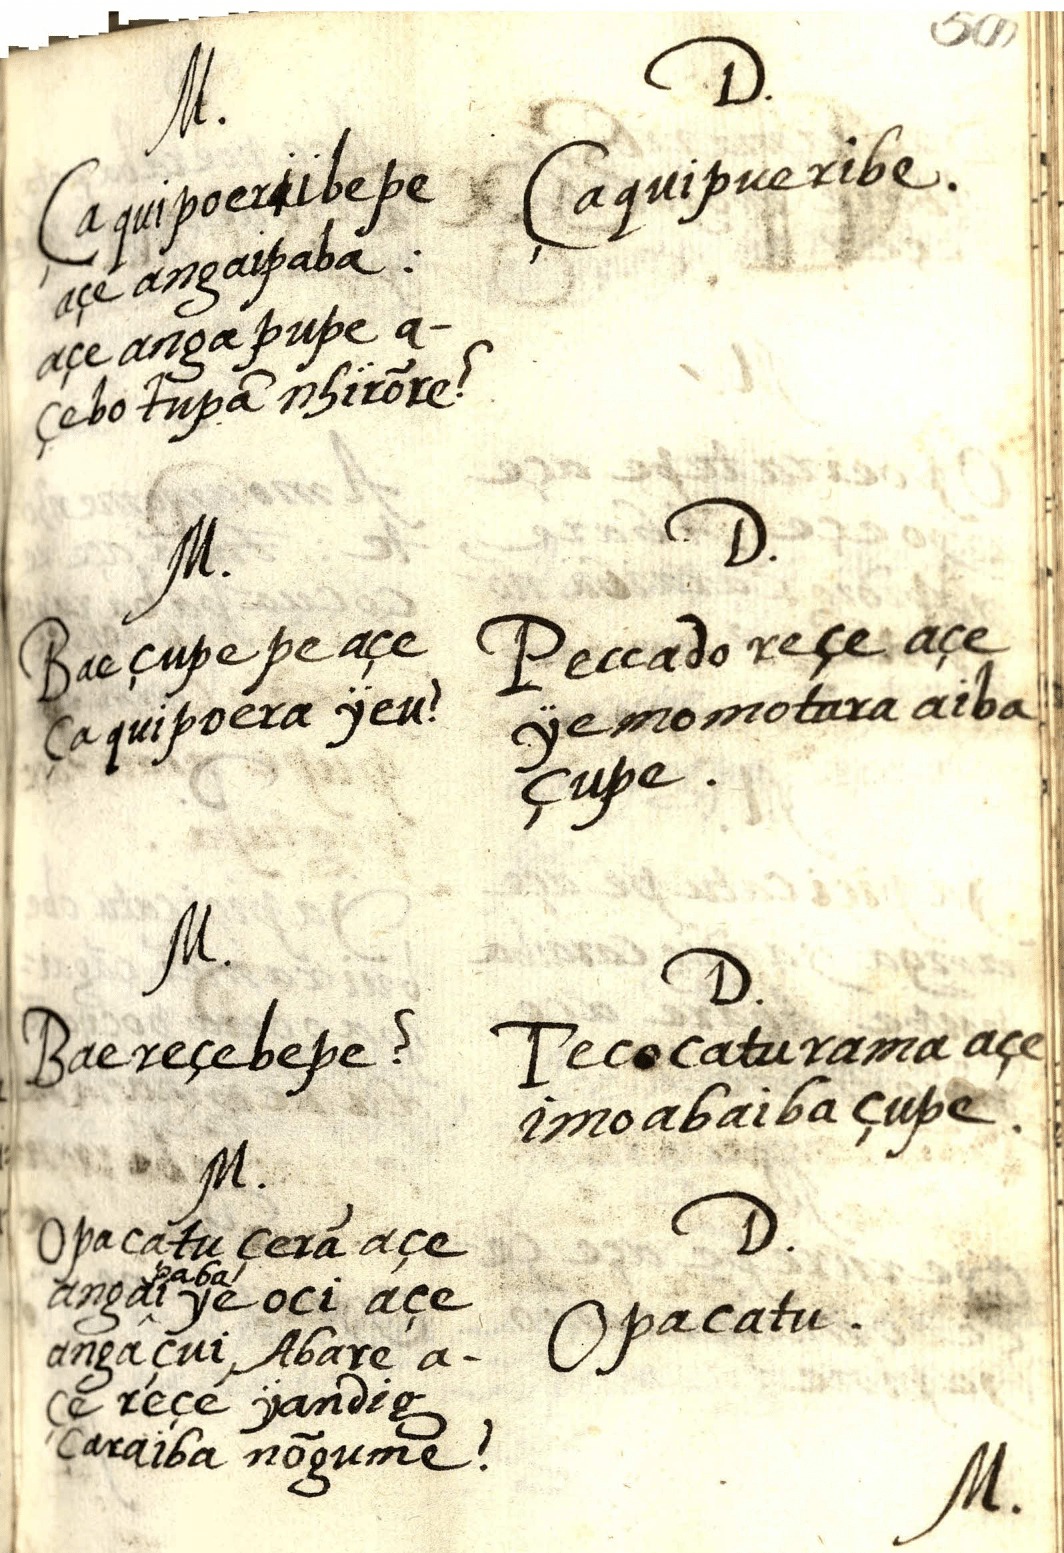 M.
Çaquipoeriibepe
açe angaipaba :
açe anga pupe a-
çebo tupã nhirõre?
D.
Çaquipueribe.
M.
Bae çupe pe açe
çaquipoera ÿeu?
D.
Peccado reçe açe
ÿe momotara aiba
çupe .
M.
Bae reçebepe ?
D.
Teco catu rama açe
imoabaiba çupe .
M.
Opacatu çerã açe
angaipaba ÿe oci açe
angâ çui, Abare a-
çe reçe ÿandig
Caraiba nõgume ?
D.
Opacatu .
M.